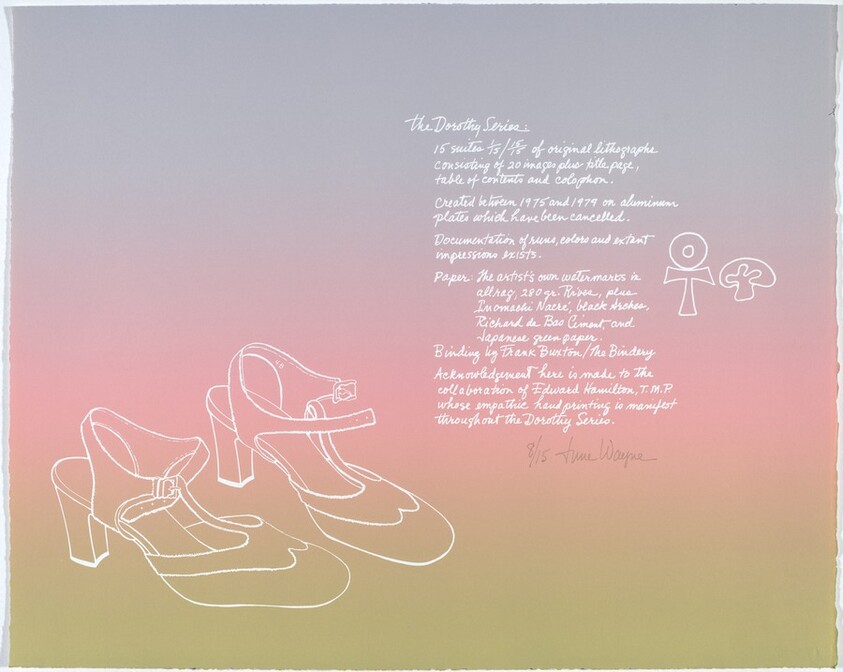 the Dorothy Series:
15 suites 1/15 / 15/15 of original lithographs
consisting of 20 images plus title page,
table of contents and colophon.
Created between 1975 and 1979 on aluminum
plates which have been cancelled.
Documentation of runs, colors and extant
impressions exists.
Paper: the artist's own watermarks in
all rag, 280 gr. Rives, plus
Inomachi Nacré, black Arches,
Richard de Bas Ciment, and
Japanese green paper.
Binding by Frank Buxton/The Bindery
Acknowledgement here is made to the
collaboration of Edward Hamilton, T.M.P.
whose empathic hand printing is manifest
throughout the Dorothy Series.
8/15 June Wayne